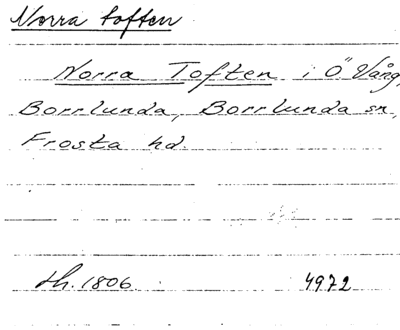 Norra toften
Norra Toften i Ö Vång,
Borrlunda, Borrlunda sn,
Frosta hd.
Lh. 1806. 4972